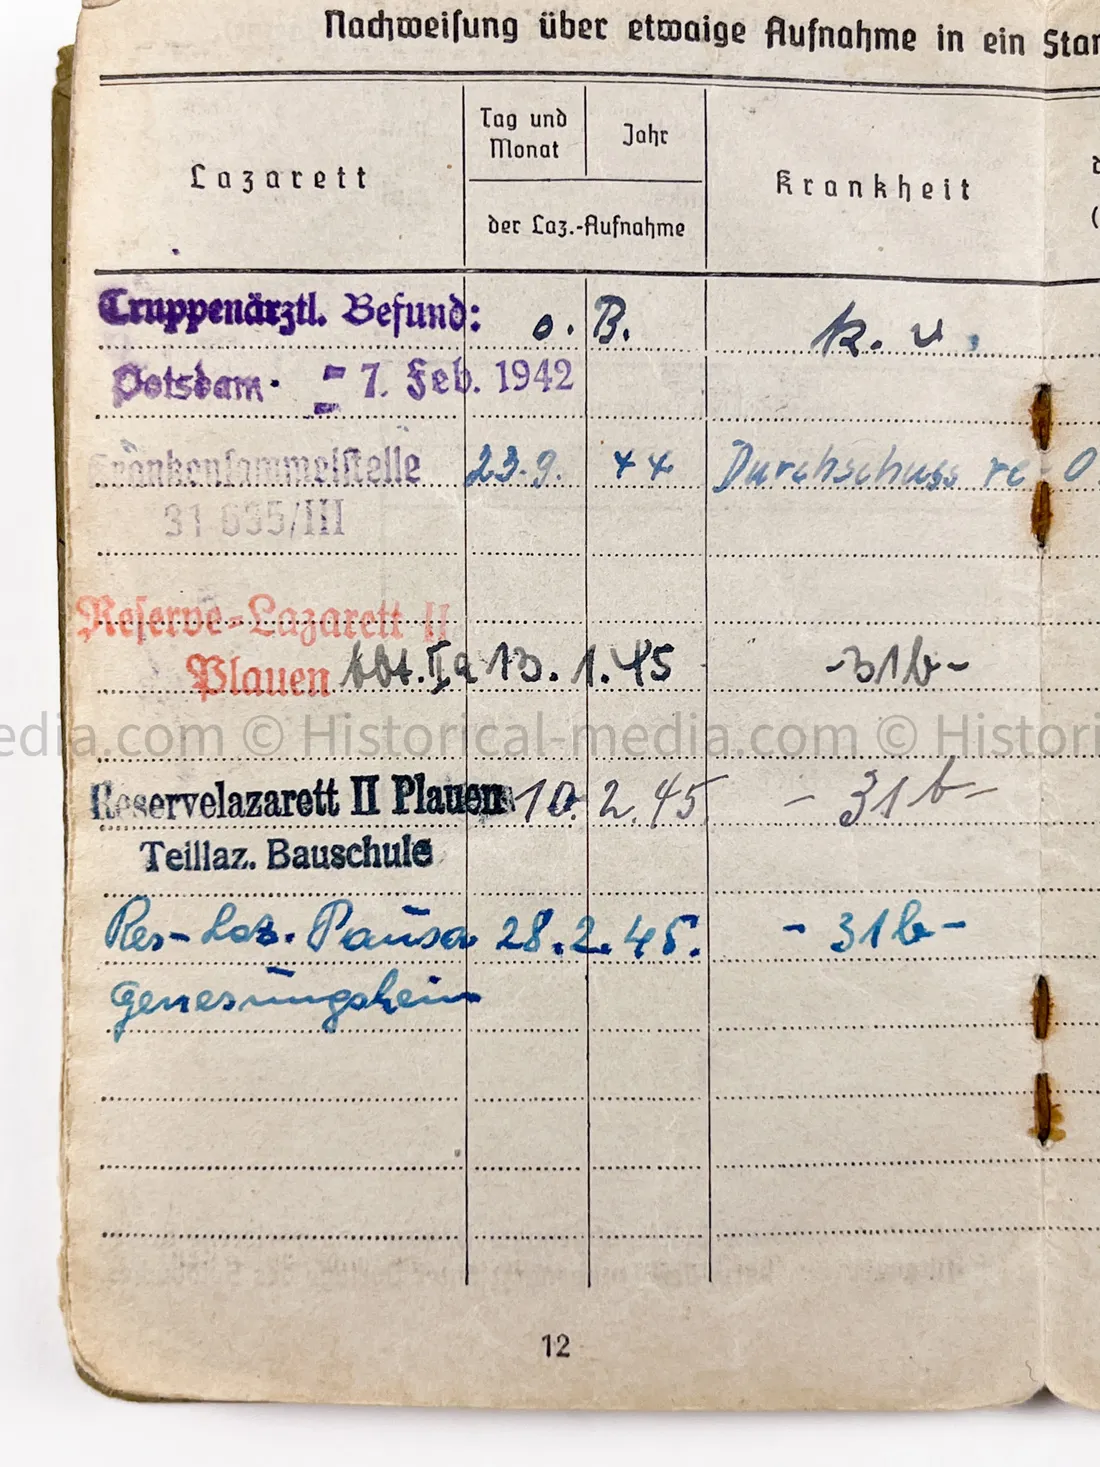 Nachweisung über etwaige Aufnahme in ein Stan
Lazarett
Tag und Monat
Jahr
der Laz.-Aufnahme
Krankheit
Truppenärztl. Befund: o. B. k. u.
Potsdam. - 7. Feb. 1942
Krankensammelstelle 23.9. 44 Durchschuss re. O.
31 635/III
Reserve-Lazarett II
Plauen Abt. II a 13. 1. 45 -31b-
edia.com © Historical-media.com © Histori
Reservelazarett II Plauen 10. 2. 45. -31b-
Teillaz. Bauschule
Res-Laz. Pausa 28. 2. 45. -31b-
Genesungsheim
12